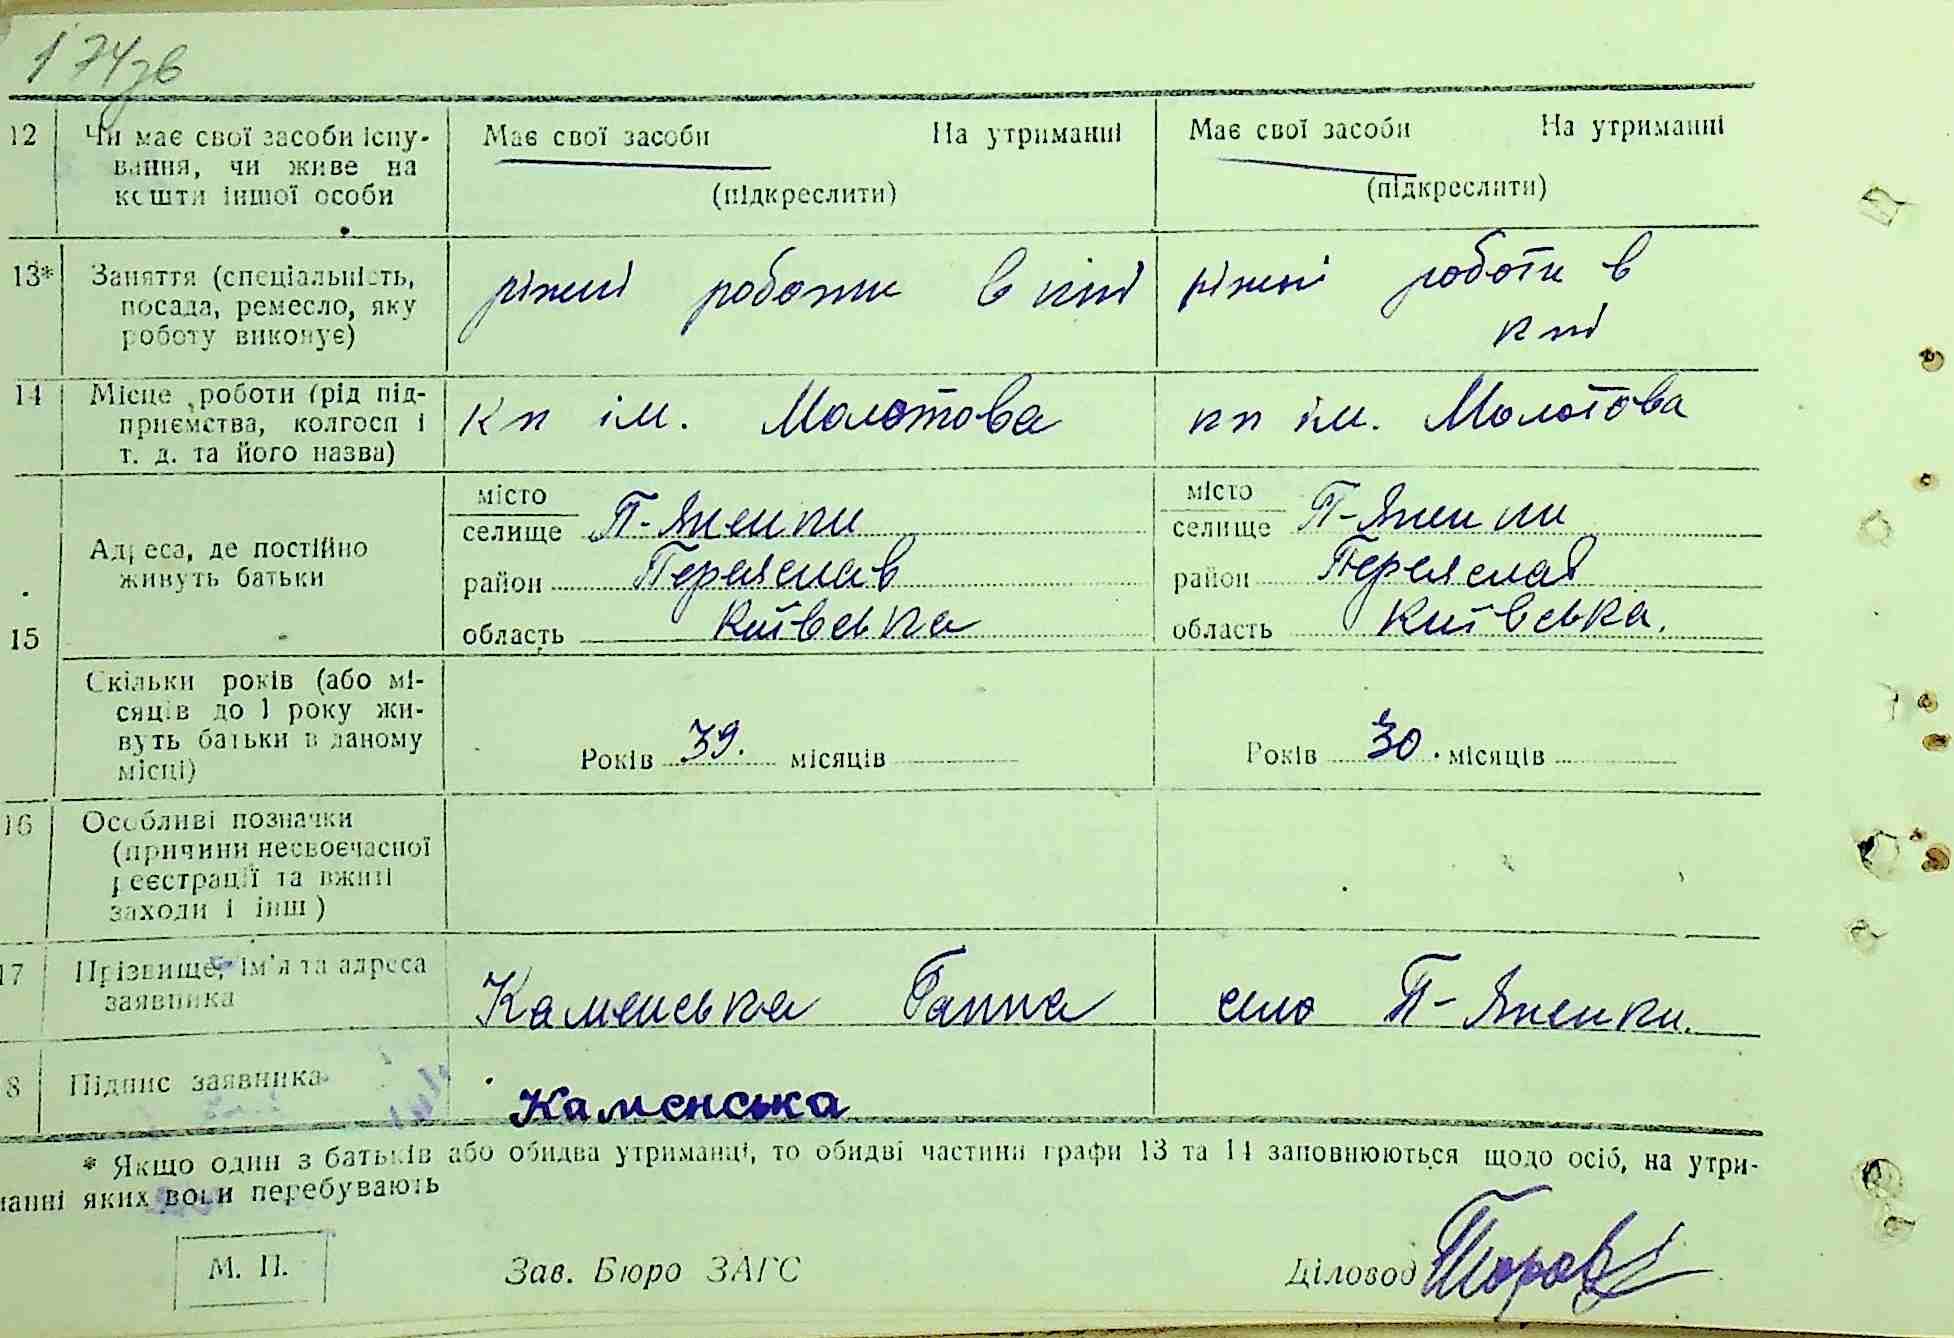 174зв
12 Чи має свої засоби існу- Має свої засоби На утриманні Має свої засоби На утриманні
вання, чи живе на
кошти іншої особи (підкреслити) (підкреслити)
13* Заняття (спеціальність, ріжні роботи в кпі ріжні роботи в
посада, ремесло, яку кпі
роботу виконує)
14 Місце роботи (рід під- кп ім. Молотова кп ім. Молотова
приємства, колгосп і
т. д. та його назва)
місто місто
селище П-Яненки селище П-Яненки
Адреса, де постійно
живуть батьки район Переяслав район Переяслав
15 область Київська область Київська.
Скільки років (або мі-
сяців до 1 року жи-
вуть батьки в даному Років 39. місяців Років 30. місяців
місці)
16 Особливі позначки
(причини несвоєчасної
реєстрації та вжиті
заходи і інш)
17 Прізвище, ім'я та адреса
заявника Каменська Ганна село П-Яненки.
8 Підпис заявника Камєнська
* Якщо один з батьків або обидва утриманці, то обидві частини графи 13 та 14 заповнюються щодо осіб, на утри-
манні яких вони перебувають
М. П. Зав. Бюро ЗАГС Діловод